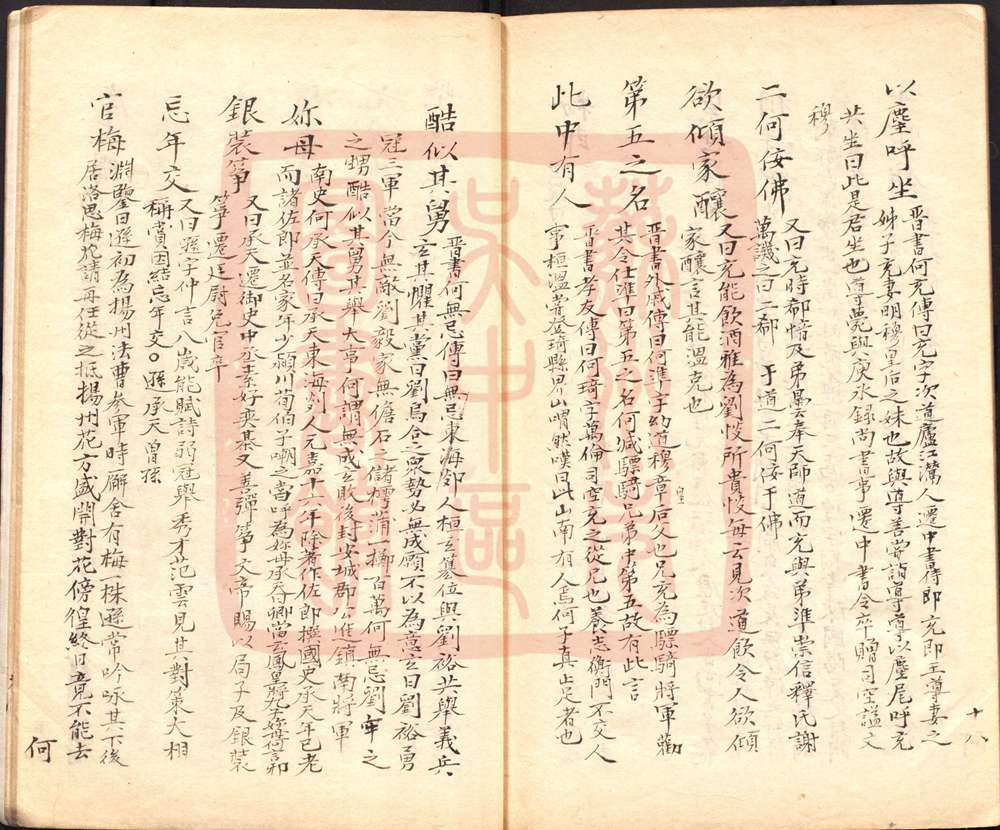 以麈呼坐 晋書何充傳曰充字次道廬江灊人遷中書侍郎充即王導妻之
姊子充妻明穆皇后之妹也故與導善嘗詣導導以麈尾呼充
共坐曰此是君坐也導薨與庾氷録尚書事遷中書令卒贈司空謚文
穆
二何佞佛 又曰充時郗愔及弟曇奉天師道而充與弟準崇信釋氏謝
萬譏之曰二郗 于道二何佞于佛
欲傾家釀 又曰充能飲酒雅為劉惔所貴惔每云見次道飲令人欲傾
家釀言其能溫克也
第五之名 晋書外戚傳曰何準字幼道穆章皇后父也兄充為驃騎將軍勸
其令仕準曰第五之名何减驃騎兄弟中第五故有此言
此中有人 晋書孝友傳曰何琦字萬倫司空充之從兄也養志衡門不交人
事桓溫嘗登琦縣界山喟然嘆曰此山南有人焉何子真止足者也
十八
酷似其舅 晋書何無忌傳曰無忌東海郯人桓玄篡位與劉裕共舉義兵
玄甚懼其黨曰劉烏合之衆勢必無成願不以為意玄曰劉裕勇
冠三軍當今無敵劉毅家無儋石之儲樗蒲一擲百萬何無忌劉牢之
之甥酷似其舅共舉大事何謂無成玄敗後封安城郡公進鎮南將軍
妳母 南史何承天傳曰承天東海郯人元嘉十六年除著作佐郎撰國史承天年已老
而諸佐郎並名家年少潁川荀伯子嘲之當呼為妳母承天曰卿當云鳳凰將九子妳母何言卯
銀裝箏 又曰承天遷御史中丞素好奕棊又善彈箏文帝賜以局子及銀裝
箏遷廷尉免官卒
忘年交 又曰遜字仲言八歲能賦詩弱冠舉秀才范雲見其對策大相
稱賞因結忘年交〇遜承天曾孫
官梅 淵鑒曰遜初為揚州法曹参軍時廨舍有梅一株遜常吟咏其下後
居洛思梅花請再任從之抵揚州花方盛開對花傍徨終日竟不能去
何